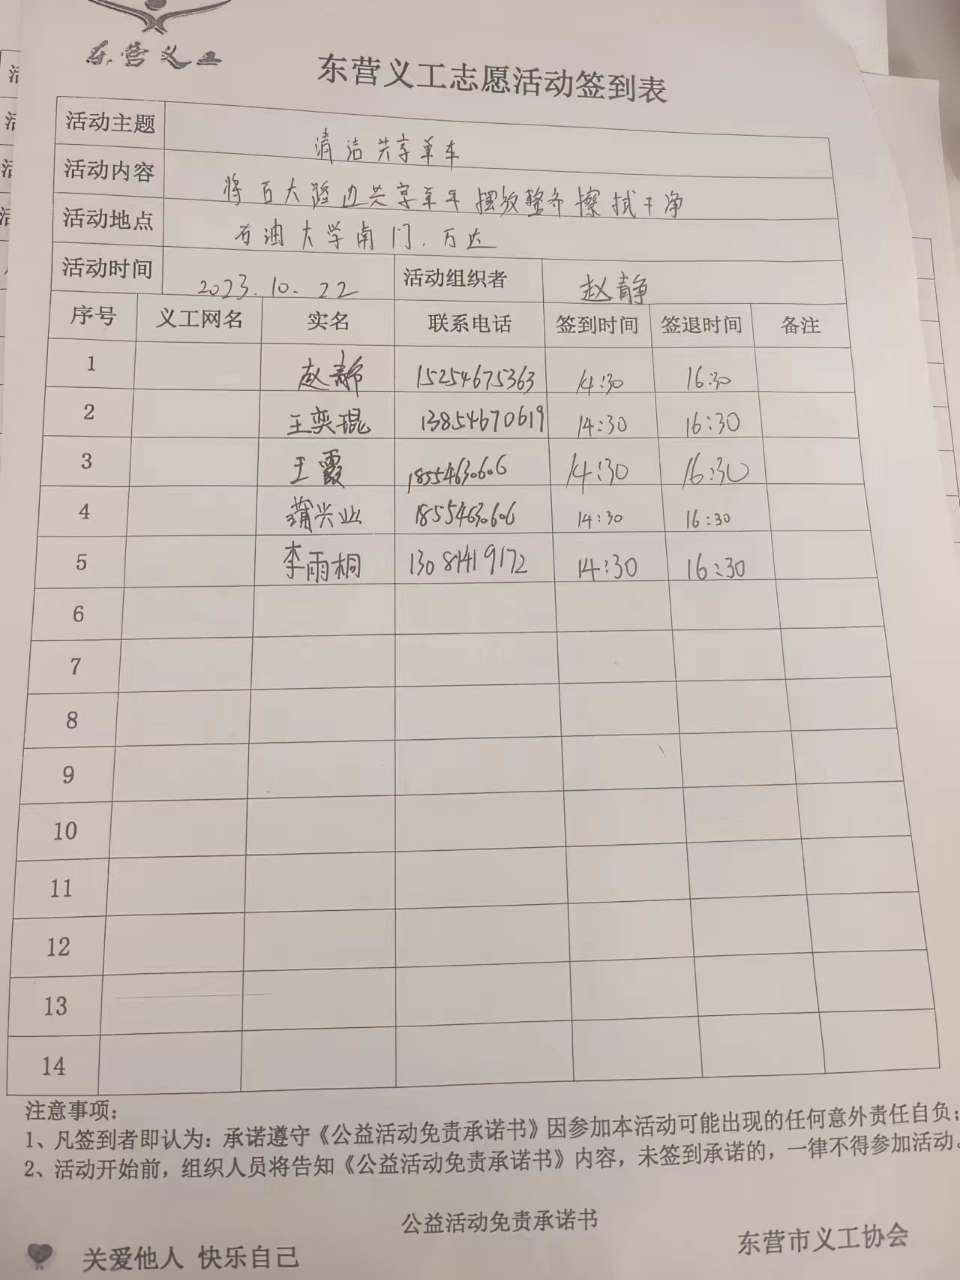 东营义工
东营义工志愿活动签到表
活动主题 清洁共享单车
活动内容 将百大路边共享单车摆放整齐擦拭干净
活动地点 石油大学南门.万达
活动时间 2023.10.22 活动组织者 赵静
序号 义工网名 实名 联系电话 签到时间 签退时间 备注
1 赵静 15254675363 14:30 16:30
2 王奕琨 13854670619 14:30 16:30
3 王霞 14:30 16:30
4 蒲兴业 14:30 16:30
5 李雨桐 14:30 16:30
6
7
8
9
10
11
12
13
14
注意事项:
1、凡签到者即认为:承诺遵守《公益活动免责承诺书》因参加本活动可能出现的任何意外责任自负;
2、活动开始前,组织人员将告知《公益活动免责承诺书》内容,未签到承诺的,一律不得参加活动。
公益活动免责承诺书
关爱他人 快乐自己
东营市义工协会